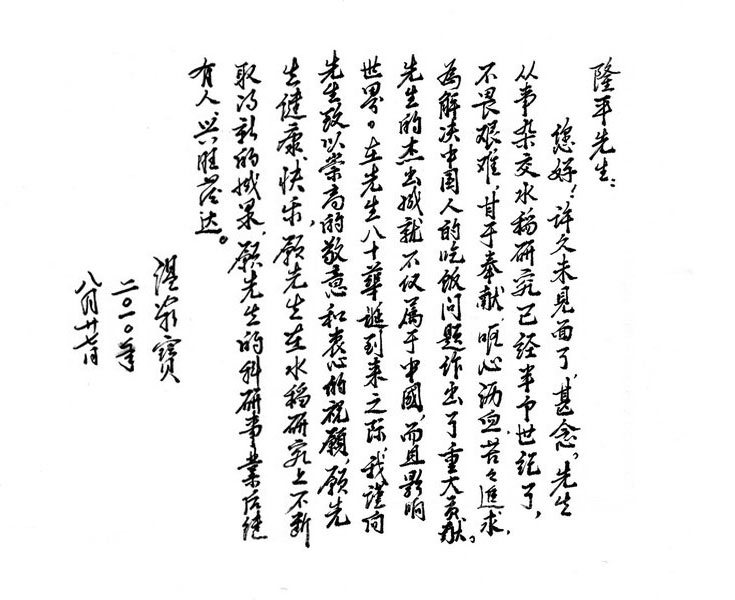 隆平先生：
您好！许久未见面了，甚念。先生
从事杂交水稻研究已经半个世纪了，
不畏艰难，甘于奉献，呕心沥血，苦苦追求，
为解决中国人的吃饭问题作出了重大贡献。
先生的杰出成就不仅属于中國，而且影响
世界。在先生八十华诞到来之际，我谨向
先生致以崇高的敬意和衷心的祝愿，愿先
生健康快乐，愿先生在水稻研究上不断
取得新的成果，愿先生的科研事业后继
有人、兴旺发达。
温家寶
二〇一〇年
八月廿七日